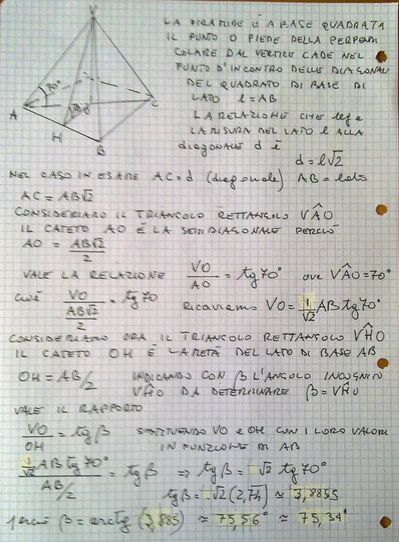 V
70°
β
A
H
B
C
LA PIRAMIDE È A BASE QUADRATA
IL PUNTO O PIEDE DELLA PERPENDI
COLARE DAL VERTICE CADE NEL
PUNTO D'INCONTRO DELLE DIAGONALI
DEL QUADRATO DI BASE DI
LATO l = AB
LA RELAZIONE CHE lega
LA MISURA DEL LATO l ALLA
diagonale d è
d = l√2
NEL CASO IN ESAME AC = d (diagonale) AB = lato
AC = AB√2
CONSIDERIAMO IL TRIANGOLO RETTANGOLO VÂO
IL CATETO AO È LA SEMIDIAGONALE PERCIÒ
AO = AB√2/2
VALE LA RELAZIONE VO/AO = tg 70° ove VÂO = 70°
cioè VO/(AB√2/2) = tg 70 Ricaviamo VO = 1/√2 AB tg 70°
CONSIDERIAMO ORA IL TRIANGOLO RETTANGOLO VĤO
IL CATETO OH È LA METÀ DEL LATO DI BASE AB
OH = AB/2 INDICANDO CON β L'ANGOLO INCOGNITO
VĤO DA DETERMINARE β = VĤO
VALE IL RAPPORTO
VO/OH = tg β SOSTITUENDO VO e OH CON I LORO VALORI
IN FUNZIONE DI AB
(1/√2 AB tg 70°)/(AB/2) = tg β ⇒ tg β = √2 tg 70°
tg β = √2 (2,74) ≅ 3,8855
perciò β = arctg (3,885) ≅ 75,56° ≅ 75,34'